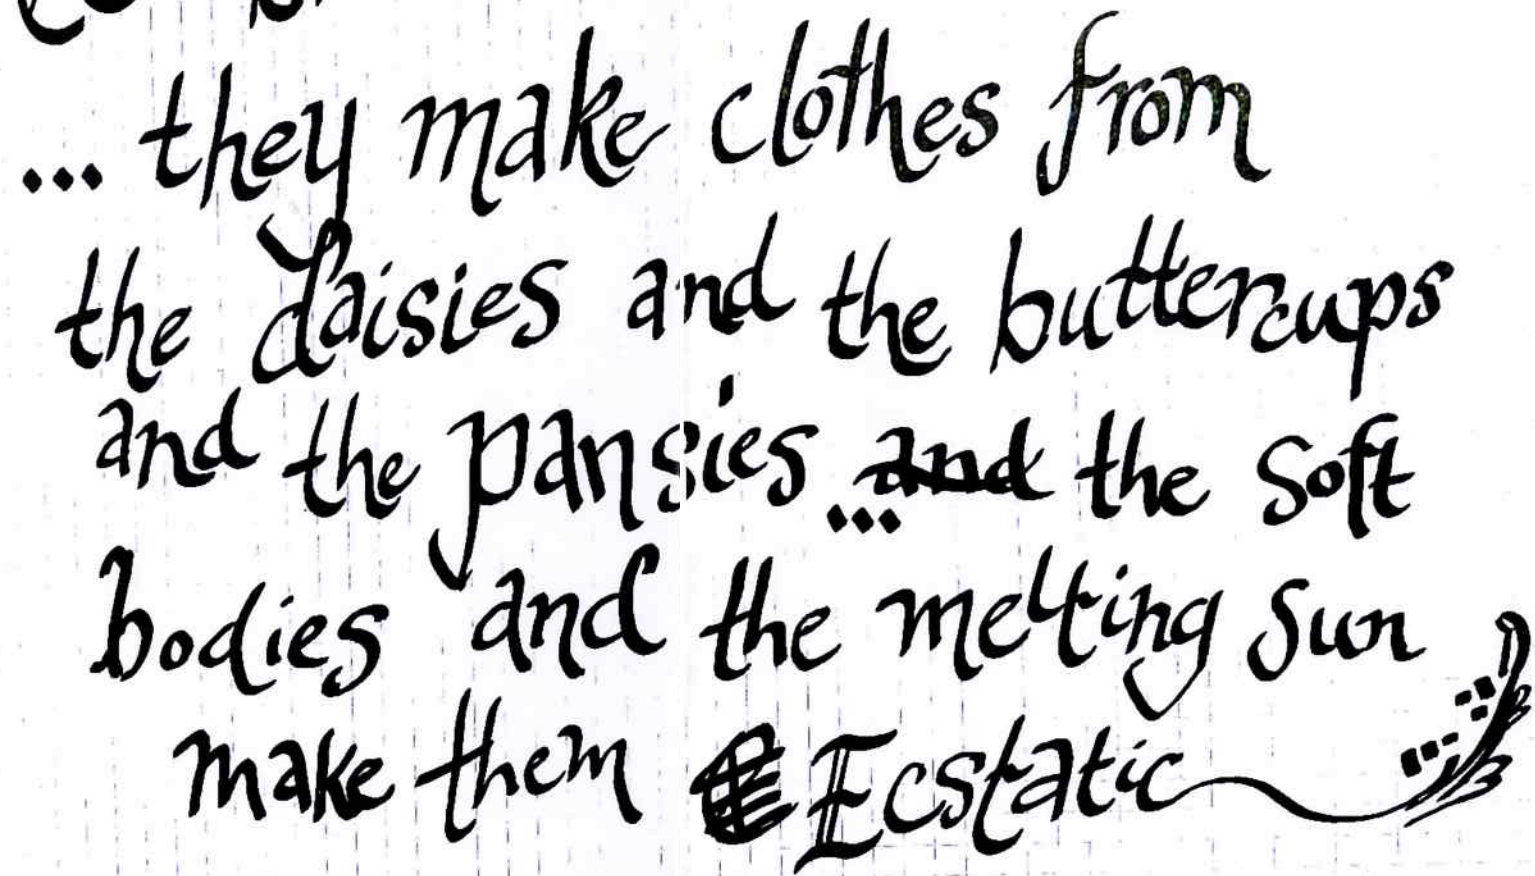 ... they make clothes from
the daisies and the buttercups
and the pansies ... and the soft
bodies and the melting sun
make them Ecstatic